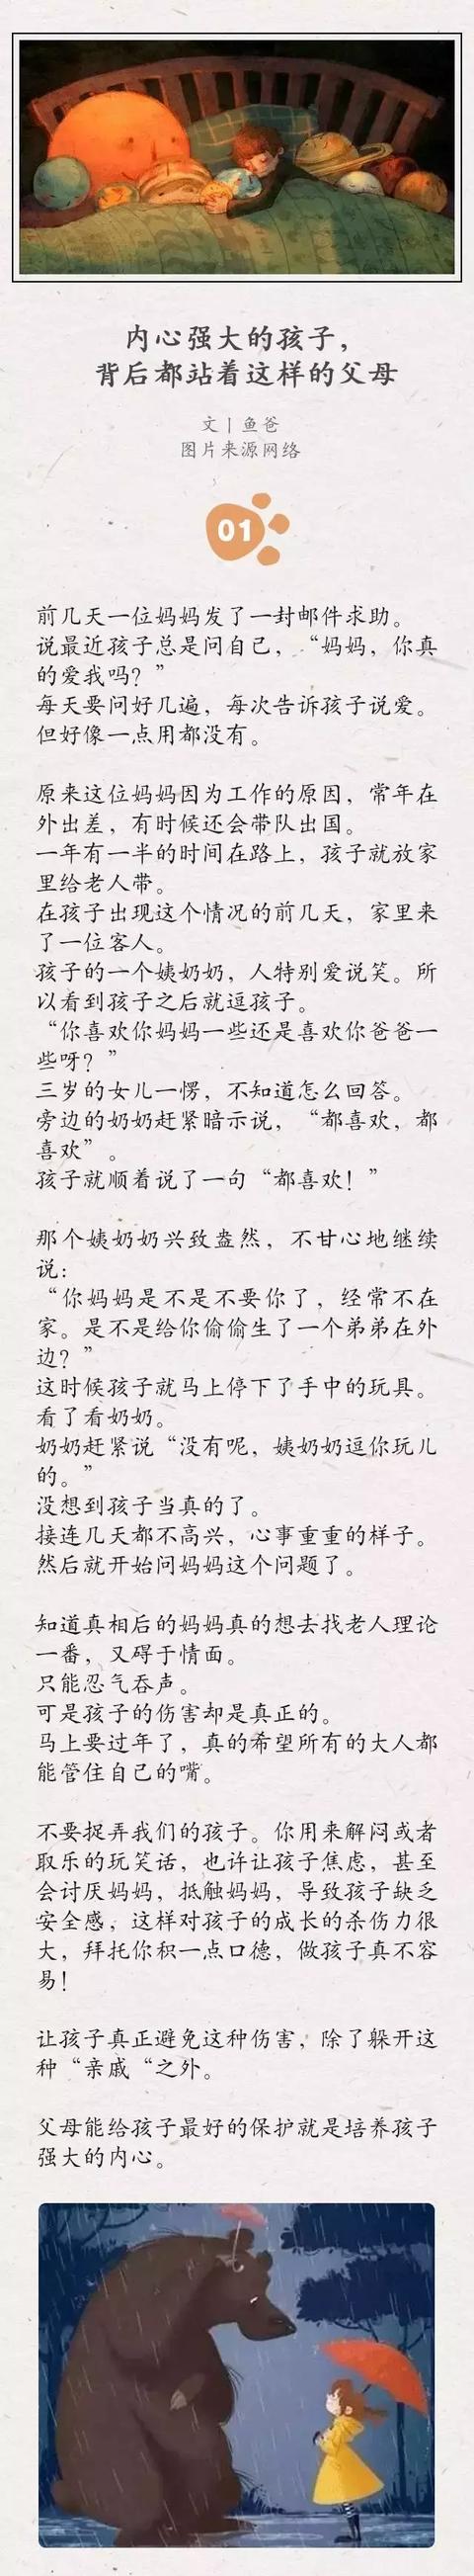 内心强大的孩子，
背后都站着这样的父母
文丨鱼爸
图片来源网络
01
前几天一位妈妈发了一封邮件求助。
说最近孩子总是问自己，“妈妈，你真
的爱我吗？”
每天要问好几遍，每次告诉孩子说爱。
但好像一点用都没有。
原来这位妈妈因为工作的原因，常年在
外出差，有时候还会带队出国。
一年有一半的时间在路上，孩子就放家
里给老人带。
在孩子出现这个情况的前几天，家里来
了一位客人。
孩子的一个姨奶奶，人特别爱说笑。所
以看到孩子之后就逗孩子。
“你喜欢你妈妈一些还是喜欢你爸爸一
些呀？”
三岁的女儿一愣，不知道怎么回答。
旁边的奶奶赶紧暗示说，“都喜欢，都
喜欢”。
孩子就顺着说了一句“都喜欢！”
那个姨奶奶兴致盎然，不甘心地继续
说：
“你妈妈是不是不要你了，经常不在
家。是不是给你偷偷生了一个弟弟在外
边？”
这时候孩子就马上停下了手中的玩具。
看了看奶奶。
奶奶赶紧说“没有呢，姨奶奶逗你玩儿
的。”
没想到孩子当真的了。
接连几天都不高兴，心事重重的样子。
然后就开始问妈妈这个问题了。
知道真相后的妈妈真的想去找老人理论
一番，又碍于情面。
只能忍气吞声。
可是孩子的伤害却是真正的。
马上要过年了，真的希望所有的大人都
能管住自己的嘴。
不要捉弄我们的孩子。你用来解闷或者
取乐的玩笑话，也许让孩子焦虑，甚至
会讨厌妈妈，抵触妈妈，导致孩子缺乏
安全感，这样对孩子的成长的杀伤力很
大，拜托你积一点口德，做孩子真不容
易！
让孩子真正避免这种伤害，除了躲开这
种“亲戚“之外。
父母能给孩子最好的保护就是培养孩子
强大的内心。